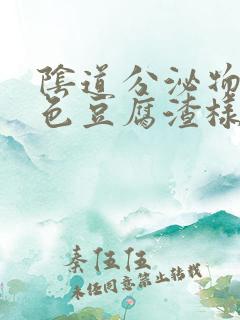 陰道分泌物
色豆腐渣樣
秦伍伍
未经同意禁止转载